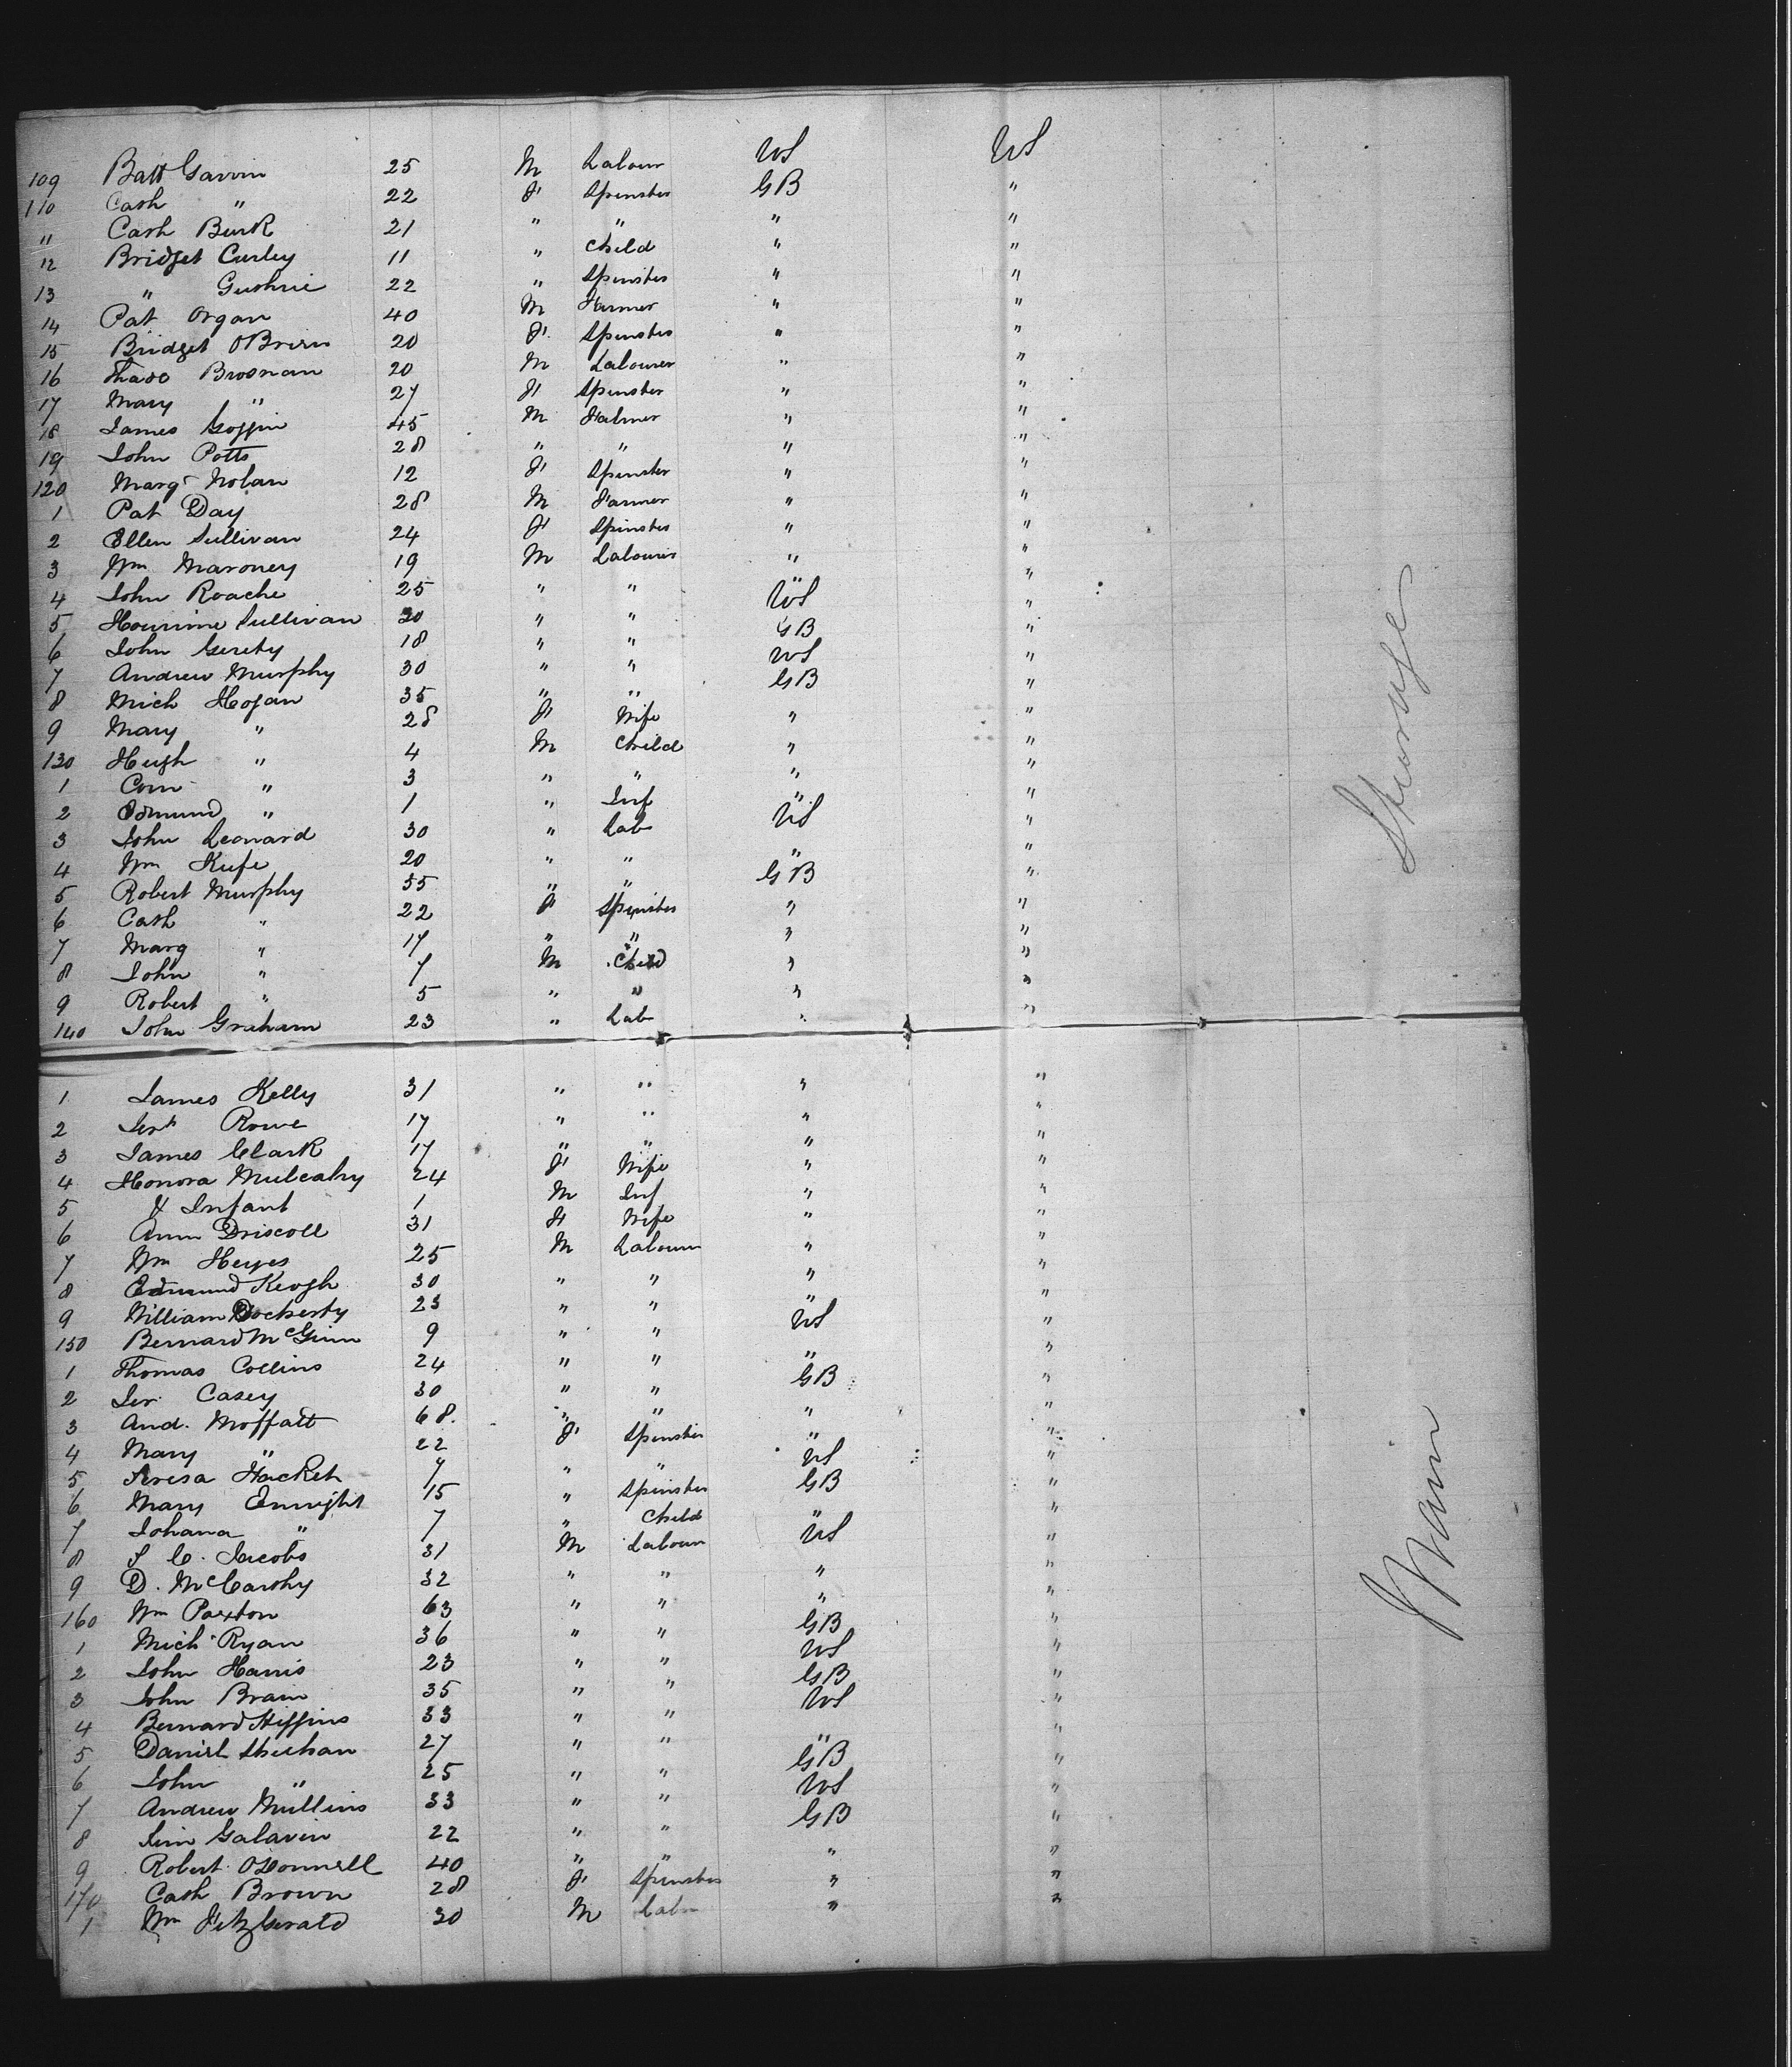 109 Batt Garvin 25 M Labour US US
110 Cath " 22 F Spinster GB "
11 Cath Burk 21 " " " "
12 Bridget Curley 11 " Child " "
13 " Guthrie 22 " Spinster " "
14 Pat Organ 40 M Farmer " "
15 Bridget OBrien 20 F Spinster " "
16 Thado Brosnan 20 M Labourer " "
17 Mary " 27 F Spinster " "
18 James Goggin 45 M Farmer " "
19 John Potts 28 " " " "
120 Margt Nolan 12 F Spinster " "
1 Pat Day 28 M Farmer " "
2 Ellen Sullivan 24 F Spinster " "
3 Wm Maroney 19 M Labourer " "
4 John Roache 25 " " US "
5 Sullivan 30 " " GB "
6 John Gerety 18 " " US "
7 Andrew Murphy 30 " " GB "
8 Mich Hogan 35 " " "
9 Mary " 28 F Wife " "
130 Hugh " 4 M Child " "
1 Corn " 3 " " " "
2 Edmund " 1 " Inf " "
3 John Leonard 30 " Lab US "
4 Wm Kufe 20 " " " "
5 Robert Murphy 55 " " GB "
6 Cath " 22 F Spinster " "
7 Marg " 17 " " " "
8 John " 7 M Child " "
9 Robert " 5 " " " "
140 John Graham 23 " Lab " "
1 James Kelly 31 " " " "
2 Jerh Rowe 17 " " " "
3 James Clark 17 " " " "
4 Honora Mulcahy 24 F Wife " "
5 & Infant 1 M Inf " "
6 Ann Driscoll 31 F Wife " "
7 Wm Heyes 25 M Labour " "
8 Edmund Keogh 30 " " " "
9 William Docherty 23 " " " "
150 Bernard McGinn 9 " " US "
1 Thomas Collins 24 " " " "
2 Jer Casey 30 " " GB "
3 And. Moffatt 68. " " " "
4 Mary " 22 F Spinster " "
5 Teresa Hacket 7 " " US "
6 Mary Enright 15 " Spinster GB "
7 Johana " 7 " Child " "
8 Jacobs 31 M Labour US "
9 D. McCarthy 32 " " " "
160 Wm Paxton 63 " " " "
1 Mich Ryan 36 " " GB "
2 John Harris 23 " " US "
3 John Brain 35 " " GB "
4 Bernard Higgins 33 " " US "
5 Daniel Sheehan 27 " " " "
6 John " 25 " " GB "
7 Andrew Mullins 33 " " US "
8 Jim Galavin 22 " " GB "
9 Robert O'Donnell 40 " " " "
170 Cath Brown 28 F Spinster " "
1 Wm FitzGerald 30 M Labr "
Steerage
Main